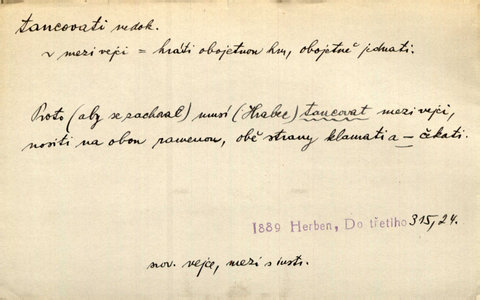 tancovati nedok.
~ mezi vejci = hráti obojetnou hru, obojetně jednati.
Proto (aby se zachoval) musí (Hrabec) tancovat mezi vejci,
nositi na obou ramenou, obě strany klamati a — čekati.
1889 Herben, Do třetího 315,24.
srov. vejce, mezi s inst.